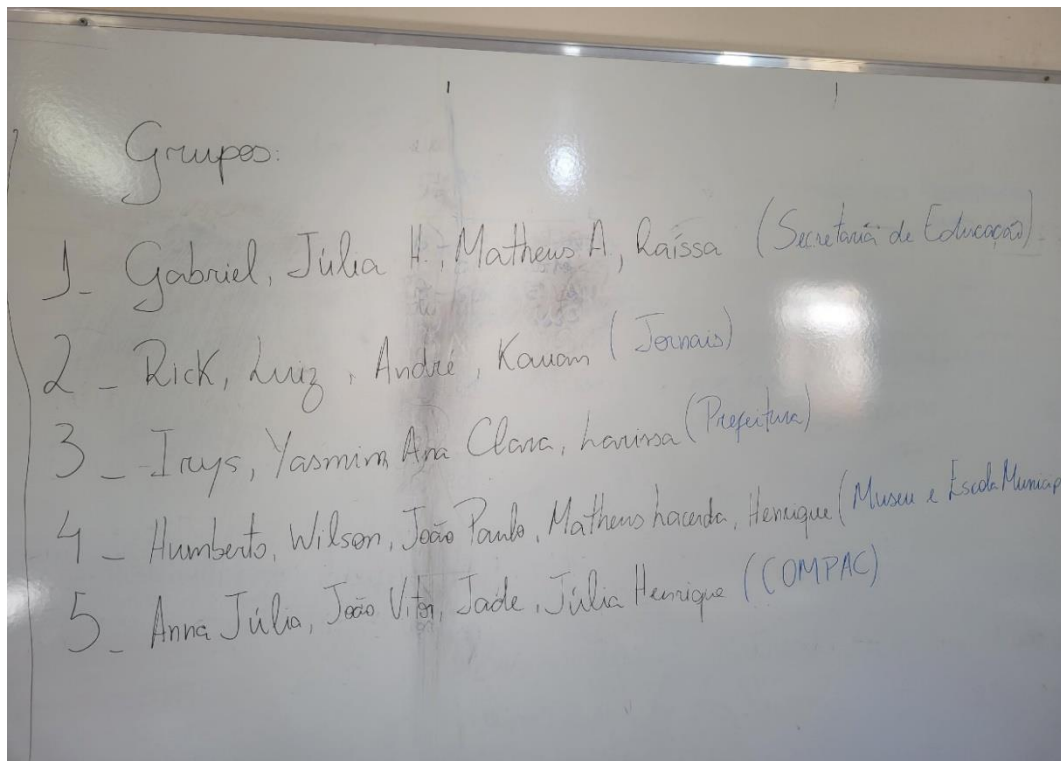 Grupos:
1- Gabriel, Júlia H., Matheus A, Raíssa (Secretaria de Educação).
2 - Rick, Luiz, André, Kauan (Jornais)
3 - Irys, Yasmim, Ana Clara, Larissa (Prefeitura)
4 - Humberto, Wilson, João Paulo, Matheus Lacerda, Henrique (Museu e Escola Municip
5 - Anna Júlia, João Vitor, Jade, Júlia Henrique (COMPAC)